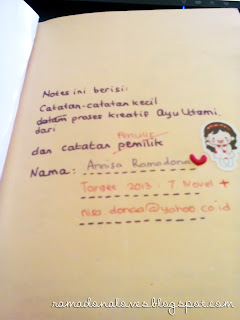 Notes ini berisi:
Catatan-catatan kecil
dalam proses kreatif Ayu Utami.
dari
Penulis
dan catatan pemilik
Nama: Annisa Ramadona
Target 2013: 7 Novel +
nisa.donaa@yahoo.co.id
ramadonaloves.blogspot.com